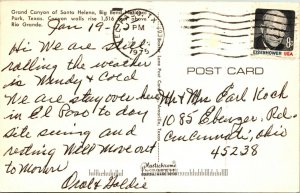 Grand Canyon of Santa Helena, Big Bend National
Park, Texas. Canyon walls rise 1,516 feet above
Rio Grande.
Jan 19-75
Hi We are still
rolling the weather
is Windy & Cold
We are stay over here
in El Paso to day
site seeing and
resting Will move out
to Morrow
Oral & Goldie
PM
1975
EISENHOWER USA
POST CARD
Mr & Mrs Earl Koch
1085 Ebenezer Rd.
Cincinnati, Ohio
45238